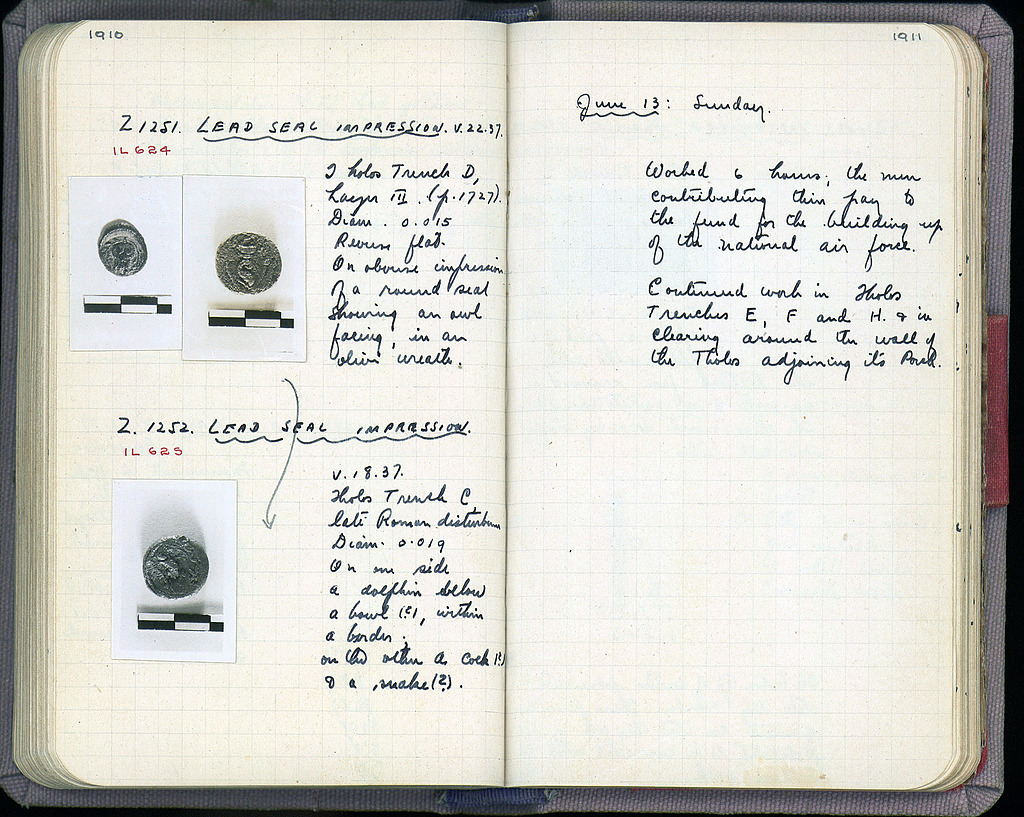 1910
Z 1251. LEAD SEAL IMPRESSION. V.22.37.
IL 624
Tholos Trench D,
Layer III (p.1727).
Diam. 0.015
Reverse flat.
On obverse impression
of a round seal
showing an owl
facing, in an
olive wreath.
Z. 1252. LEAD SEAL IMPRESSION.
IL 625
V.18.37.
Tholos Trench C,
late Roman disturbance
Diam. 0.019
On one side
a dolphin below
a bowl (?), within
a border;
on the other a cock (?)
& a snake (?).
1911
June 13: Sunday.
Worked 6 hours; the men
contributing their pay to
the fund for the building up
of the national air force.
Continued work in Tholos
Trenches E, F and H. & in
clearing around the wall of
the Tholos adjoining its Porch.